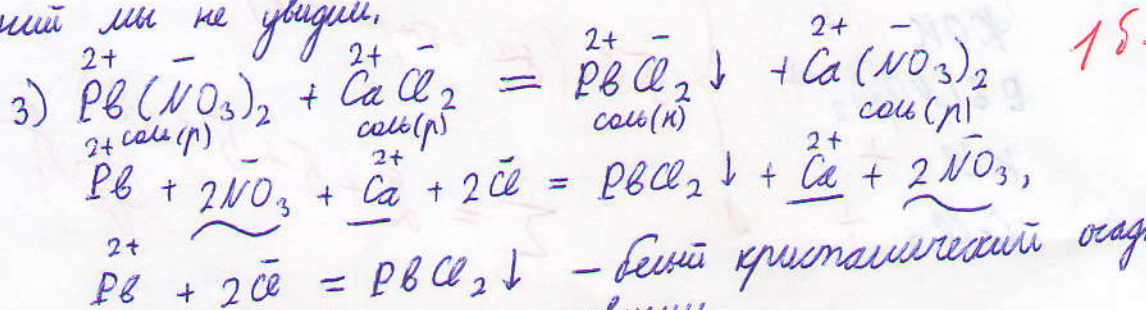 мы не увидим.
3) Pb²⁺(NO₃⁻)₂ + Ca²⁺Cl₂⁻ = Pb²⁺Cl₂⁻↓ + Ca²⁺(NO₃⁻)₂ 1б.
соль(р) соль(р) соль(н) соль(р)
Pb²⁺ + 2NO₃⁻ + Ca²⁺ + 2Cl⁻ = PbCl₂↓ + Ca²⁺ + 2NO₃⁻,
Pb²⁺ + 2Cl⁻ = PbCl₂↓ – белый кристаллический